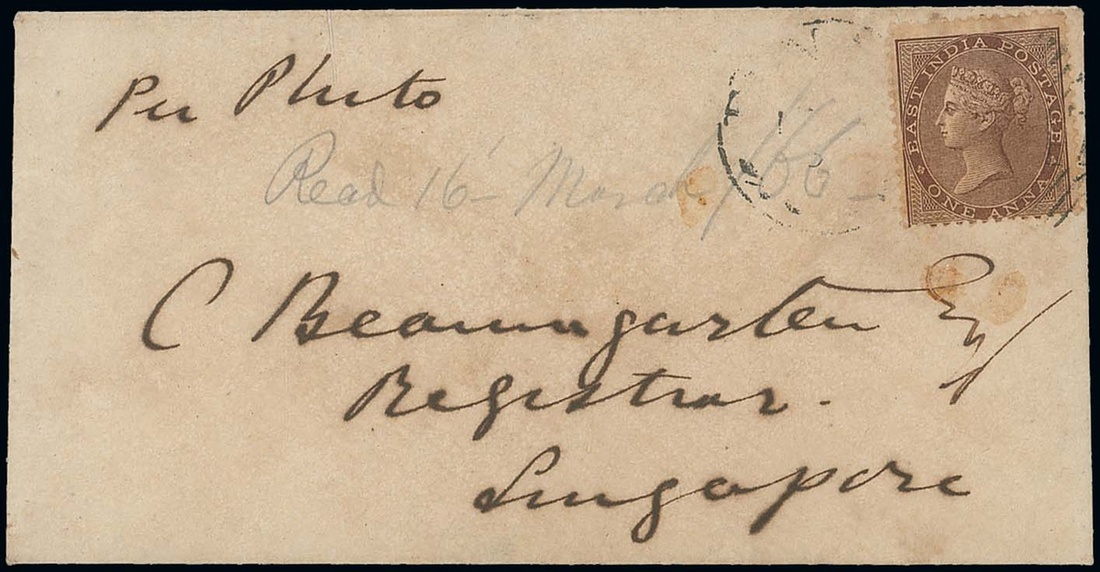 Per Pluto
EAST INDIA POSTAGE
ONE ANNA
Recd 16 March/66
C Beaumgarten Esq
Registrar.
Singapore